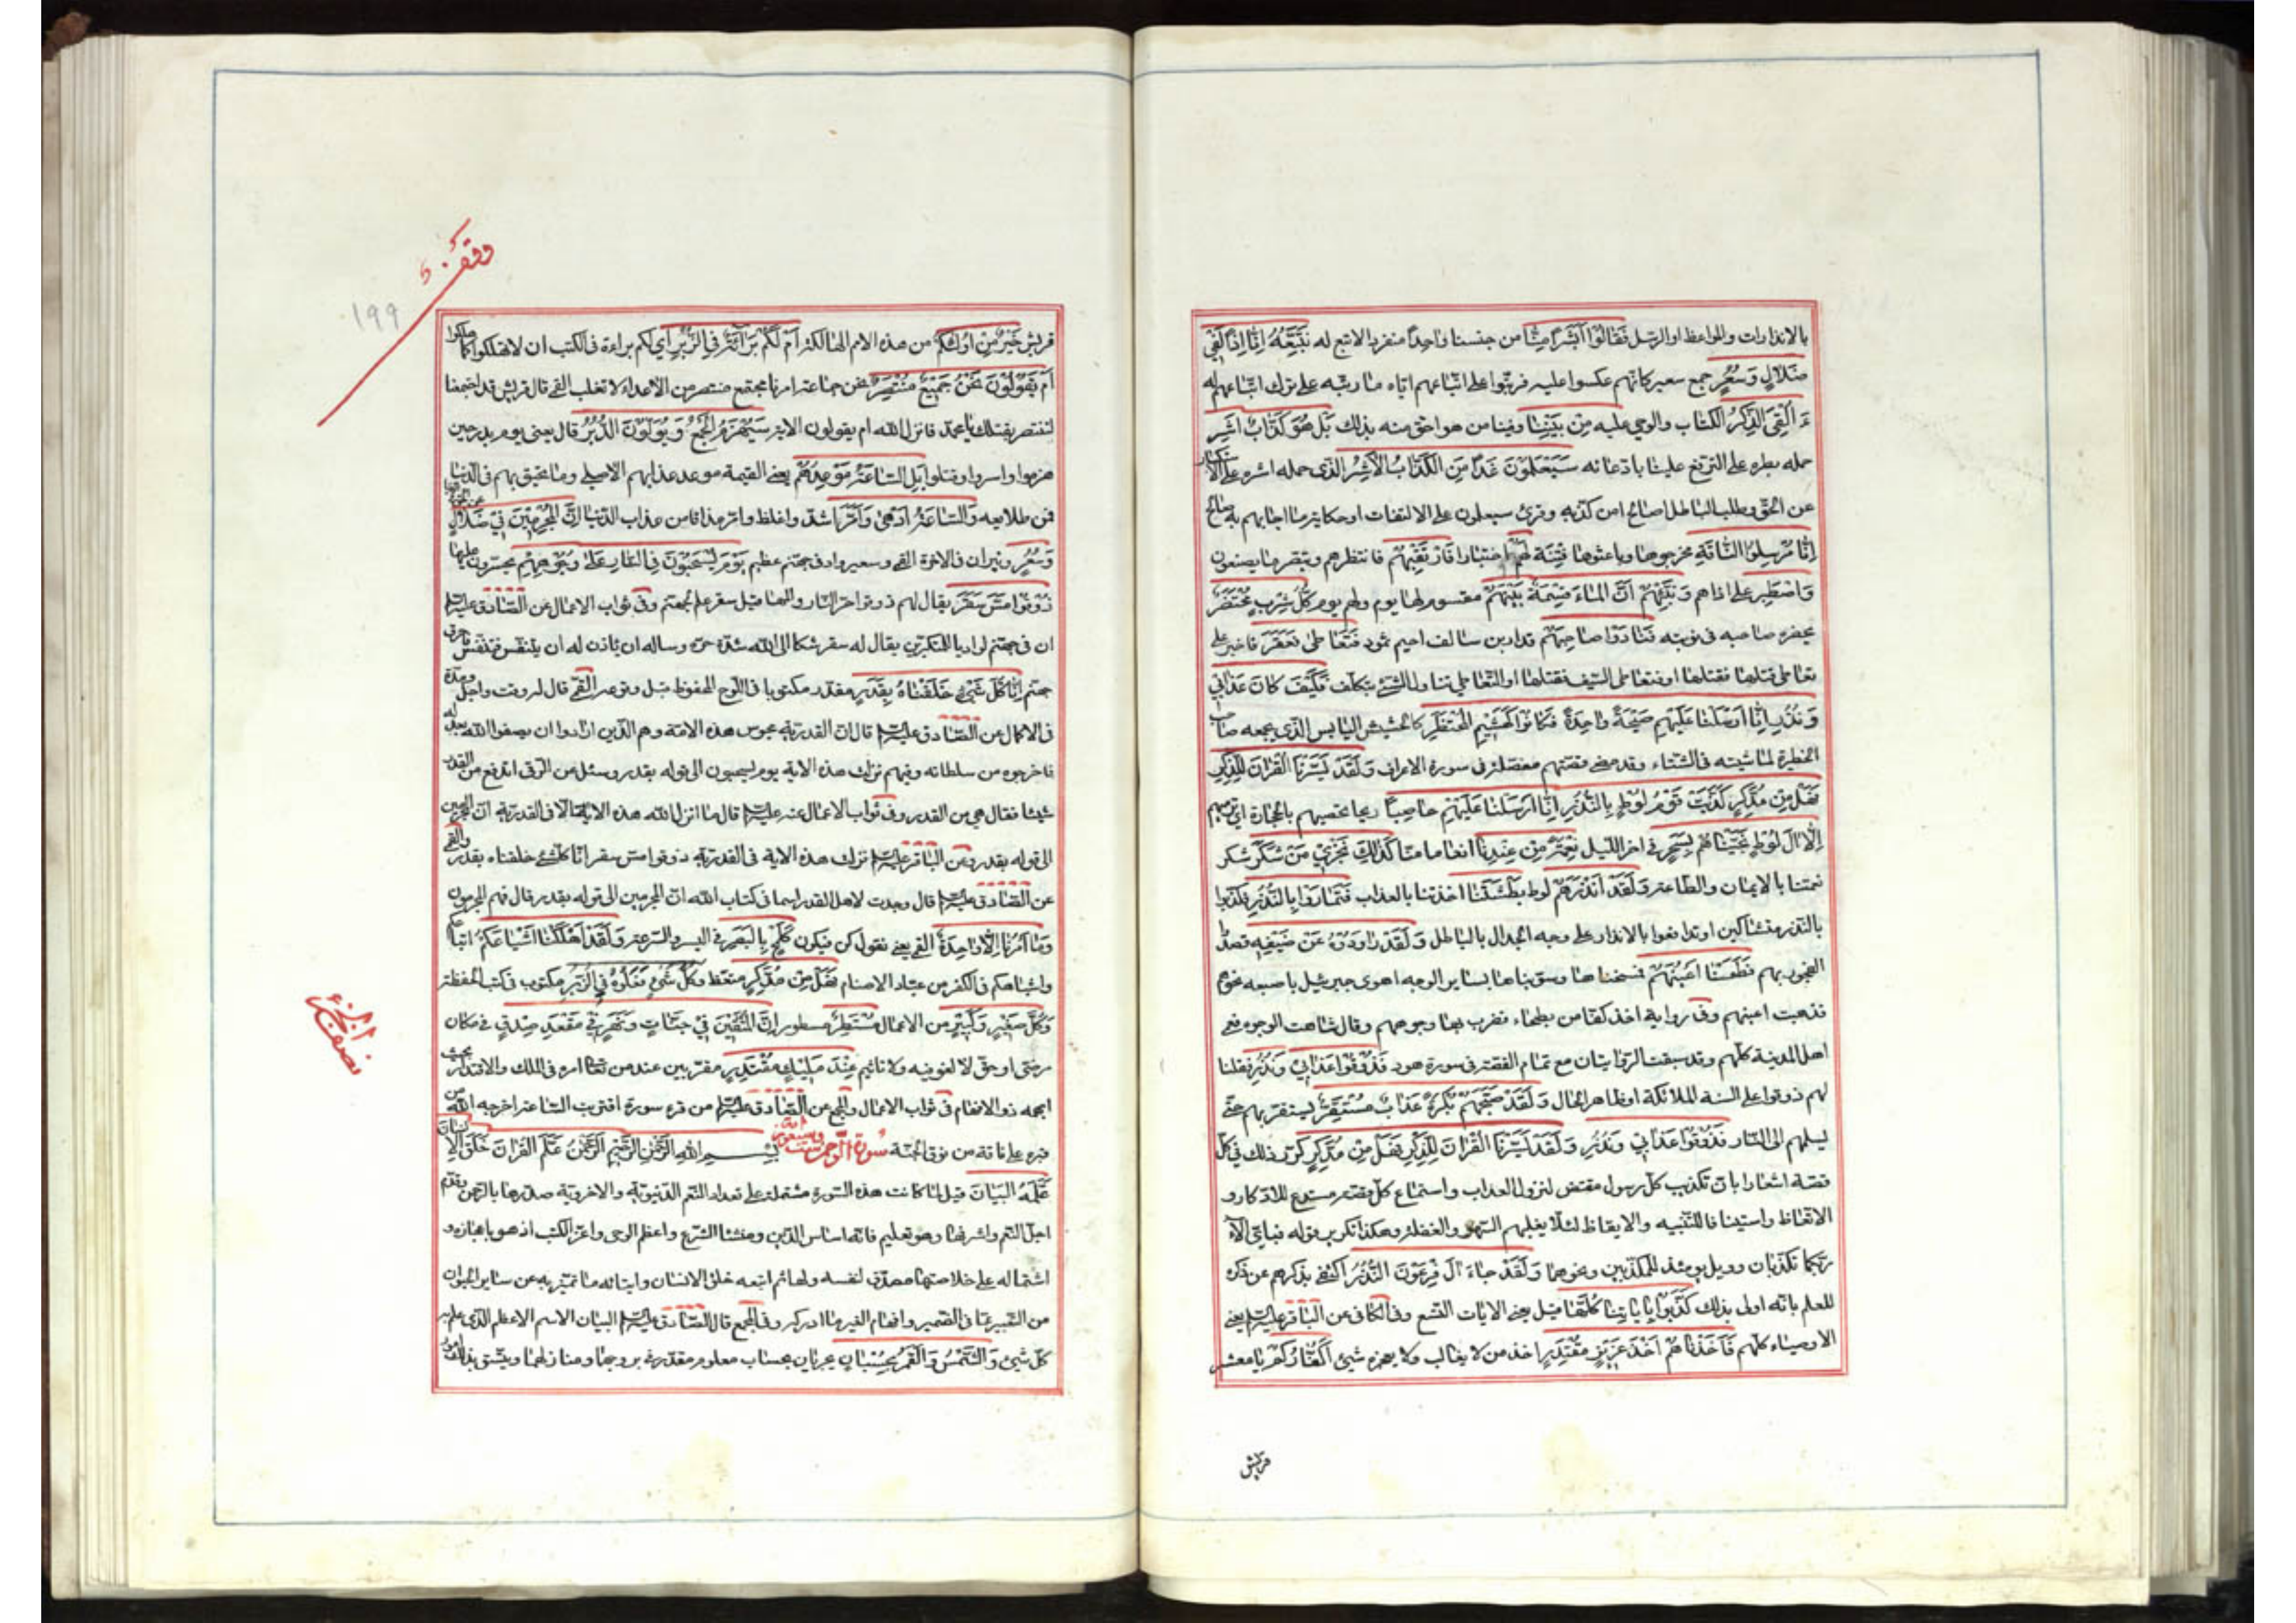 بالانذارات والمواعظ او الرسل فَقَالُوا أَبَشَرًا مِنَّا من جنسنا وَاحِدًا منفردا لا تبع له نَتَّبِعُهُ إِنَّا إِذًا لَفِي
ضَلَالٍ وَسُعُرٍ جمع سعير كانهم عكسوا عليه فرتبوا على اتباعهم اياه ما رتبه على ترك اتباعهم له
ءَ أُلْقِيَ الذِّكْرُ الكتاب والوحي عليه مِنْ بَيْنِنَا وفينا من هو احق منه بذلك بَلْ هُوَ كَذَّابٌ أَشِرٌ
حمله بطره على الترفع علينا بادعائه سَيَعْلَمُونَ غَدًا مَنِ الْكَذَّابُ الْأَشِرُ الذى حمله اشره على الاستكبار
عن الحق وطلب الباطل اصالح ام من كذبه وقرئ ستعلمون على الالتفات او حكاية ما اجابهم به صالح
إِنَّا مُرْسِلُوا النَّاقَةِ مخرجوها وباعثوها فِتْنَةً لَهُمْ اختبارا فَارْتَقِبْهُمْ فانتظرهم وتبصر ما يصنعون
وَاصْطَبِرْ على اذاهم وَنَبِّئْهُمْ أَنَّ الْمَاءَ قِسْمَةٌ بَيْنَهُمْ مقسوم لها يوم ولهم يوم كُلُّ شِرْبٍ مُحْتَضَرٌ
يحضره صاحبه فى نوبته فَنَادَوْا صَاحِبَهُمْ قدار بن سالف احيمر ثمود فَتَعَاطَى فَعَقَرَ فاجترء على
تعاطى قتلها فقتلها او فتعاطى السيف فقتلها او التعاطي تناول الشئ بتكلف فَكَيْفَ كَانَ عَذَابِي
وَنُذُرِ إِنَّا أَرْسَلْنَا عَلَيْهِمْ صَيْحَةً وَاحِدَةً فَكَانُوا كَهَشِيمِ الْمُحْتَظِرِ كالحشيش اليابس الذى يجمعه صاحب
الحظيرة لماشيته فى الشتاء وقد مضى قصتهم مفصلة فى سورة الاعراف وَلَقَدْ يَسَّرْنَا الْقُرْآنَ لِلذِّكْرِ
فَهَلْ مِنْ مُدَّكِرٍ كَذَّبَتْ قَوْمُ لُوطٍ بِالنُّذُرِ إِنَّا أَرْسَلْنَا عَلَيْهِمْ حَاصِبًا ريحا تحصبهم بالحجارة اى ترميهم
إِلَّا آلَ لُوطٍ نَجَّيْنَاهُمْ بِسَحَرٍ فى اخر الليل نِعْمَةً مِنْ عِنْدِنَا انعاما منا كَذَلِكَ نَجْزِي مَنْ شَكَرَ شكر
نعمتنا بالايمان والطاعة وَلَقَدْ أَنْذَرَهُمْ لوط بَطْشَتَنَا اخذتنا بالعذاب فَتَمَارَوْا بِالنُّذُرِ فكذبوا
بالنذر متشاكين او تدافعوا بالانذار على وجه الجدال بالباطل وَلَقَدْ رَاوَدُوهُ عَنْ ضَيْفِهِ قصدوا
الفجور بهم فَطَمَسْنَا أَعْيُنَهُمْ فمسخناها وسويناها بساير الوجه اهوى جبرئيل باصبعه نحوهم
فذهبت اعينهم وفى رواية اخذ كفا من بطحاء فضرب بها وجوههم وقال شاهت الوجوه فعمى
اهل المدينة كلهم وقد سبقت الروايتان مع تمام القصة فى سورة هود فَذُوقُوا عَذَابِي وَنُذُرِ فقلنا
لهم ذوقوا على السنة الملائكة او ظاهر الحال وَلَقَدْ صَبَّحَهُمْ بُكْرَةً عَذَابٌ مُسْتَقِرٌّ يستقر بهم حتى
يسلمهم الى النار فَذُوقُوا عَذَابِي وَنُذُرِ وَلَقَدْ يَسَّرْنَا الْقُرْآنَ لِلذِّكْرِ فَهَلْ مِنْ مُدَّكِرٍ كرر ذلك في كل
قصة اشعارا بان تكذيب كل رسول مقتض لنزول العذاب واستماع كل قصة مستدع للادكار و
الاتعاظ واستينافا للتنبيه والايقاظ لئلا يغلبهم السهو والغفلة وهكذا تكرير قوله فباي الاء
ربكما تكذبان وويل يومئذ للمكذبين ونحوهما وَلَقَدْ جَاءَ آلَ فِرْعَوْنَ النُّذُرُ اكتفى بذكرهم عن ذكره
للعلم بانه اولى بذلك كَذَّبُوا بِآيَاتِنَا كُلِّهَا قيل يعنى الايات التسع وفى الكافى عن الباقر عليه السلام يعنى
الاوصياء كلهم فَأَخَذْنَاهُمْ أَخْذَ عَزِيزٍ مُقْتَدِرٍ اخذ من لا يغالب ولا يعجزه شئ أَكُفَّارُكُمْ يا معشر
قريش
وقف
١٩٩
قريش خَيْرٌ مِنْ أُولَئِكُمْ من هذه الامم الهالكة أَمْ لَكُمْ بَرَاءَةٌ فِي الزُّبُرِ اى لكم براءة فى الكتب ان لا تهلكوا كما هلكوا
أَمْ يَقُولُونَ نَحْنُ جَمِيعٌ مُنْتَصِرٌ نحن جماعة امرنا مجتمع منتصر من الاعداء لا تغلب القمى قال قريش قد اجتمعنا
لننتصر بقتلك يا محمد فانزل الله ام يقولون الاية سَيُهْزَمُ الْجَمْعُ وَيُوَلُّونَ الدُّبُرَ قال يعنى يوم بدر حين
هزموا واسروا وقتلوا بَلِ السَّاعَةُ مَوْعِدُهُمْ يعنى القيمة موعد عذابهم الاصلى وما يحيق بهم فى الدنيا
فمن طلايعه وَالسَّاعَةُ أَدْهَى وَأَمَرُّ اشد واغلظ وامر مذاقا من عذاب الدنيا إِنَّ الْمُجْرِمِينَ فِي ضَلَالٍ عن الحق فى الدنيا
وَسُعُرٍ ونيران فى الاخرة القمى وسعير واد فى جهنم عظيم يَوْمَ يُسْحَبُونَ فِي النَّارِ عَلَى وُجُوهِهِمْ يجرون عليها
ذُوقُوا مَسَّ سَقَرَ يقال لهم ذوقوا حر النار والمها قيل سقر علم لجهنم وفى ثواب الاعمال عن الصادق عليه السلام
ان فى جهنم لواديا للمتكبرين يقال له سقر شكا الى الله شدة حره وساله ان ياذن له ان يتنفس فتنفس فاحرق
جهنم إِنَّا كُلَّ شَيْءٍ خَلَقْنَاهُ بِقَدَرٍ مقدر مكتوبا فى اللوح المحفوظ قبل وقوعه القمى قال له وقت واجل ومدة
فى الاكمال عن الصادق عليه السلام قال ان القدرية مجوس هذه الامة وهم الذين ارادوا ان يصفوا الله بعدله
فاخرجوه من سلطانه وفيهم نزلت هذه الاية يوم يسحبون الى قوله بقدر وسئل عن الرقى اتدفع من القدر
شيئا فقال هى من القدر وفى ثواب الاعمال عنه عليه السلام قال ما انزل الله هذه الاية الا فى القدرية ان المجرمين
الى قوله بقدر وعن الباقر عليه السلام نزلت هذه الاية فى القدرية ذوقوا مس سقر انا كل شئ خلقناه بقدر والقمى
عن الصادق عليه السلام قال وجدت لاهل القدر اسما فى كتاب الله ان المجرمين الى قوله بقدر قال فهم المجرمون
وَمَا أَمْرُنَا إِلَّا وَاحِدَةٌ القمى يعنى نقول كن فيكون كَلَمْحٍ بِالْبَصَرِ فى اليسر والسرعة وَلَقَدْ أَهْلَكْنَا أَشْيَاعَكُمْ اتباعكم
واشباهكم فى الكفر من عباد الاصنام فَهَلْ مِنْ مُدَّكِرٍ متعظ وَكُلُّ شَيْءٍ فَعَلُوهُ فِي الزُّبُرِ مكتوب فى كتب الحفظة
وَكُلُّ صَغِيرٍ وَكَبِيرٍ من الاعمال مُسْتَطَرٌ مسطور إِنَّ الْمُتَّقِينَ فِي جَنَّاتٍ وَنَهَرٍ فِي مَقْعَدِ صِدْقٍ فى مكان
مرضى او حق لا لغو فيه ولا تاثيم عِنْدَ مَلِيكٍ مُقْتَدِرٍ مقربين عند من تعالى امره فى الملك والاقتدار بحيث
ابهمه ذو الافهام فى ثواب الاعمال والمجمع عن الصادق عليه السلام من قرء سورة اقتربت الساعة اخرجه الله من
قبره على ناقة من نوق الجنة سورة الرحمن بِسْمِ اللهِ الرَّحْمَنِ الرَّحِيمِ الرَّحْمَنُ عَلَّمَ الْقُرْآنَ خَلَقَ الْإِنْسَانَ
عَلَّمَهُ الْبَيَانَ قيل لما كانت هذه السورة مشتملة على تعداد النعم الدنيوية والاخروية صدرها بالرحمن وقدم
اجل النعم واشرفها وهو تعليم فانه اساس الدين ومنشا الشرع واعظم الوحى واعز الكتب اذ هو باعجازه و
اشتماله على خلاصتها مصدق لنفسه ولها ثم اتبعه خلق الانسان وايتائه ما تميز به عن ساير الحيوان
من التعبير عما فى الضمير وافهام الغير ما ادركه وفى المجمع قال الصادق عليه السلام البيان الاسم الاعظم الذى علم به
كل شئ وَالشَّمْسُ وَالْقَمَرُ بِحُسْبَانٍ يجريان بحساب معلوم مقدر فى بروجهما ومنازلهما ويتسق بذلك امور
نصف الجزء